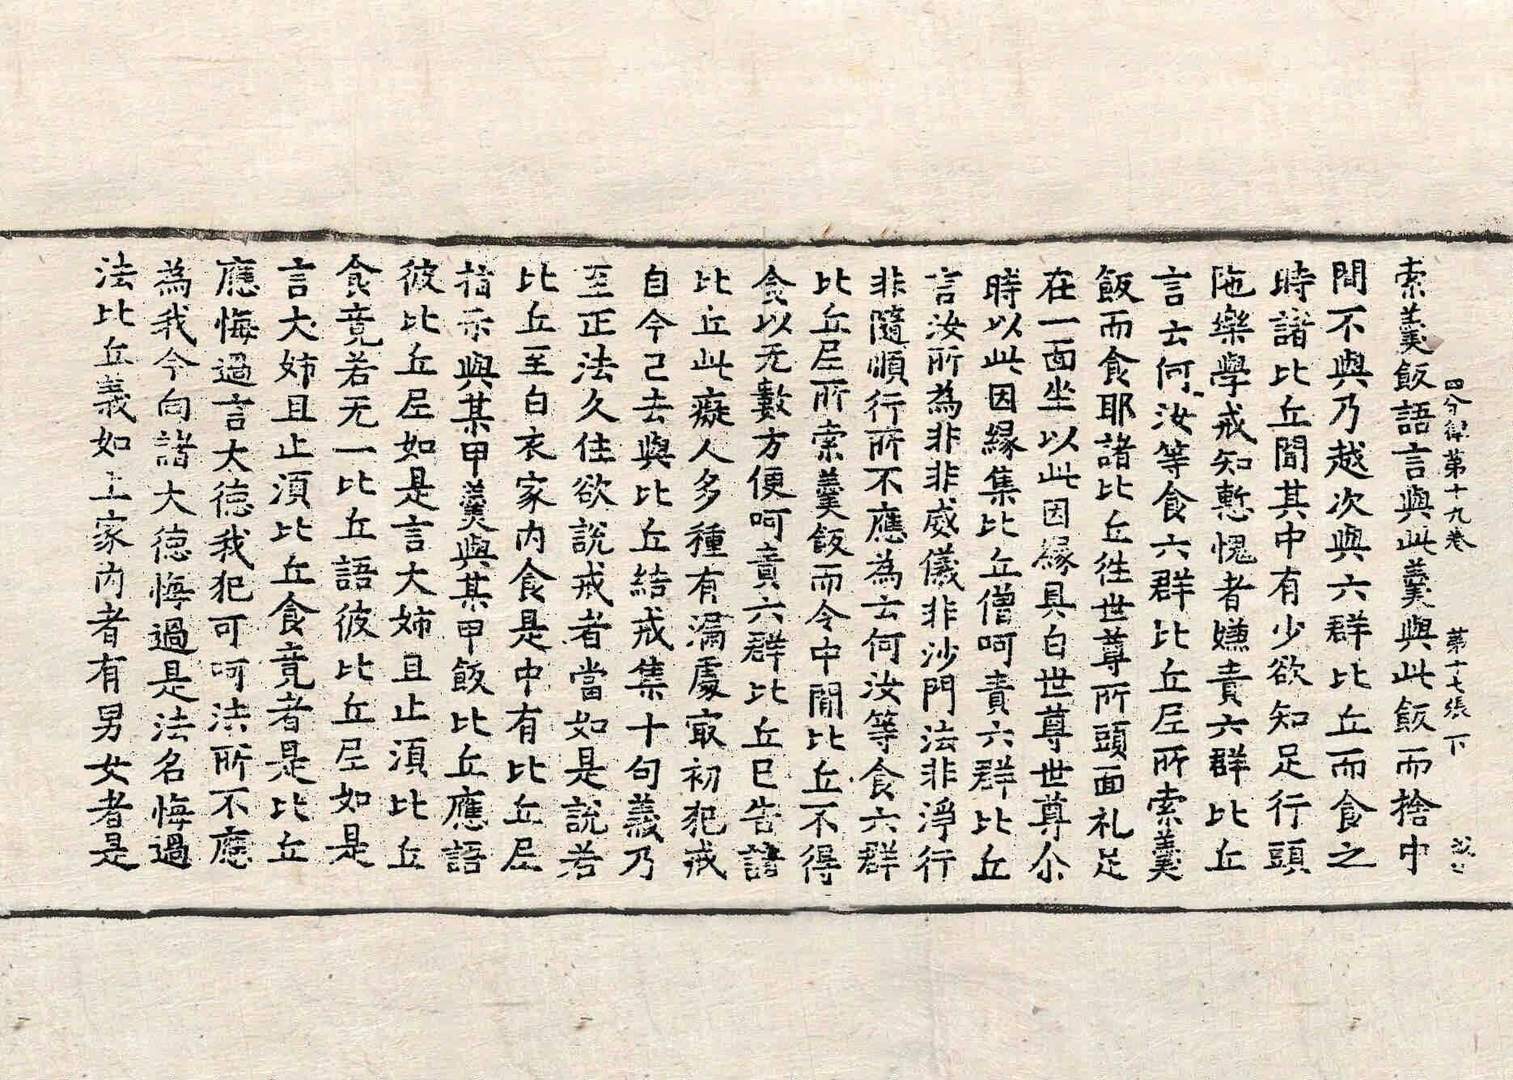 四分律第十九卷 第十七張 下
索羹飯語言與此羹與此飯而捨中
間不與乃越次與六群比丘而食之
時諸比丘聞其中有少欲知足行頭
陁樂學戒知慙愧者嫌責六群比丘
言云何汝等食六群比丘尼所索羹
飯而食耶諸比丘往世尊所頭面礼足
在一面坐以此因緣具白世尊世尊尒
時以此因緣集比丘僧呵責六群比丘
言汝所為非非威儀非沙門法非淨行
非隨順行所不應為云何汝等食六群
比丘尼所索羹飯而令中間比丘不得
食以无數方便呵責六群比丘已告諸
比丘此癡人多種有漏處㝡初犯戒
自今已去與比丘結戒集十句義乃
至正法久住欲說戒者當如是說若
比丘至白衣家内食是中有比丘尼
指示與某甲羹與某甲飯比丘應語
彼比丘尼如是言大姊且止須比丘
食竟若无一比丘語彼比丘尼如是
言大姊且止須比丘食竟者是比丘
應悔過言大德我犯可呵法所不應
為我今向諸大德悔過是法名悔過
法比丘義如上家内者有男女者是